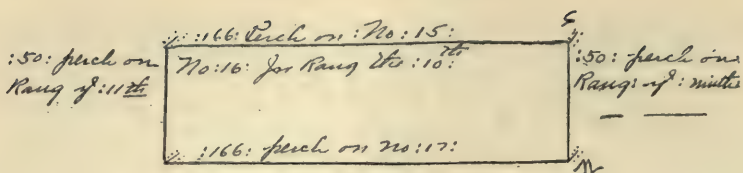 :166: Perch on :No: 15:
:50: perch on
Rang yᵉ :11th
No:16: In Rang the :10th:
:50: perch on
Rang: yᵉ: ninth
:166: perch on no:17: